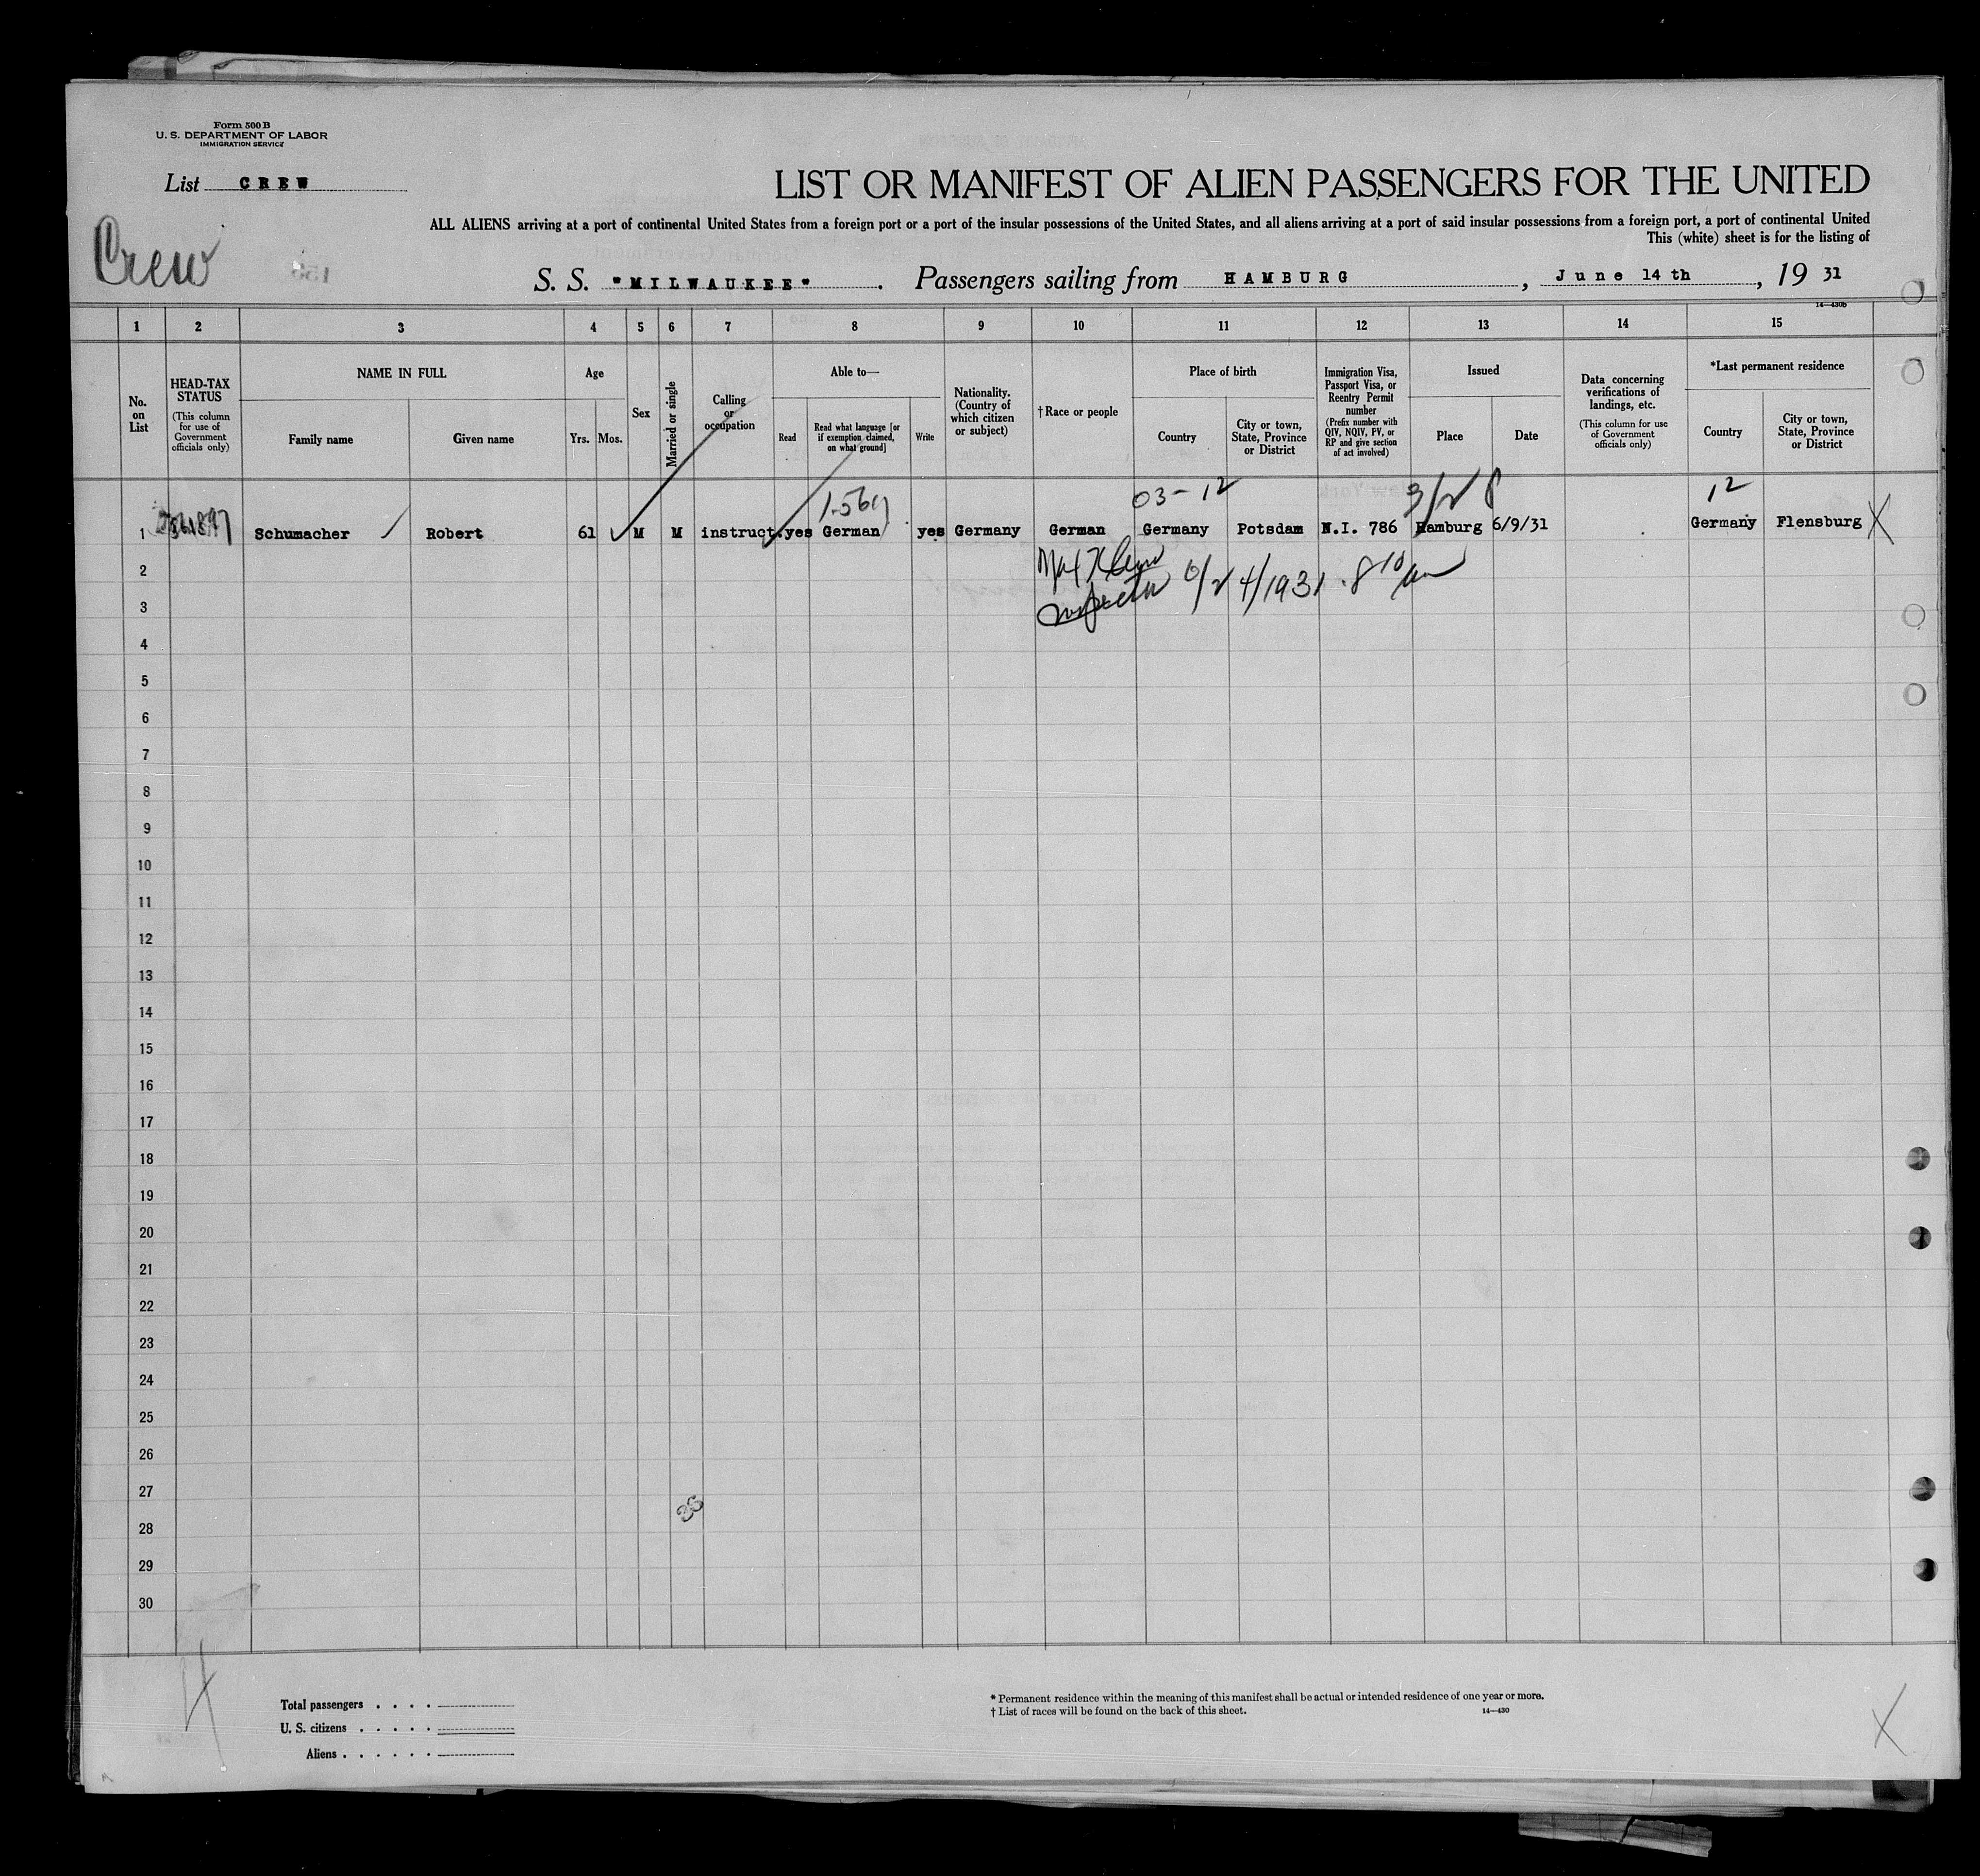 Form 500 B
U. S. DEPARTMENT OF LABOR
IMMIGRATION SERVICE
List CREW
LIST OR MANIFEST OF ALIEN PASSENGERS FOR THE UNITED
ALL ALIENS arriving at a port of continental United States from a foreign port or a port of the insular possessions of the United States, and all aliens arriving at a port of said insular possessions from a foreign port, a port of continental United
This (white) sheet is for the listing of
Crew
S. S. "MILWAUKEE". Passengers sailing from HAMBURG, June 14th, 19 31
14—430b
1 2 3 4 5 6 7 8 9 10 11 12 13 14 15
No. on List
HEAD-TAX STATUS (This column for use of Government officials only)
NAME IN FULL
Family name
Given name
Age
Yrs. Mos.
Sex
Married or single
Calling or occupation
Able to—
Read
Read what language [or if exemption claimed, on what ground]
Write
Nationality. (Country of which citizen or subject)
†Race or people
Place of birth
Country
City or town, State, Province or District
Immigration Visa, Passport Visa, or Reentry Permit number (Prefix number with QIV, NQIV, PV, or RP and give section of act involved)
Issued
Place
Date
Data concerning verifications of landings, etc. (This column for use of Government officials only)
*Last permanent residence
Country
City or town, State, Province or District
03-12
12
1 Schumacher Robert 61 M M instruct. yes German yes Germany German Germany Potsdam N.I. 786 Hamburg 6/9/31 Germany Flensburg X
6/24/1931 8 10 am
2
3
4
5
6
7
8
9
10
11
12
13
14
15
16
17
18
19
20
21
22
23
24
25
26
27
28
29
30
Total passengers . . . .
U. S. citizens . . . . .
Aliens . . . . . .
* Permanent residence within the meaning of this manifest shall be actual or intended residence of one year or more.
† List of races will be found on the back of this sheet.
14—430
X